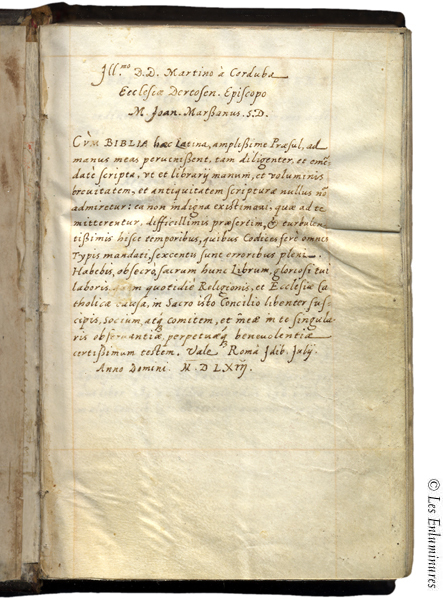 Ill.mo D.D. Martino à Corduba
Ecclesiæ Dertosen. Episcopo
M. Joan. Marßanus. S.D.
CVM BIBLIA hæc Latina, amplißime Præsul, ad
manus meas peruenißent, tam diligenter, et emē
datè scripta, vt et librarij manum, et voluminis
breuitatem, et antiquitatem scripturæ nullus nō
admiretur: ea non indigna existimaui, quæ ad te
mitterentur, difficillimis præsertim, & turbulen
tißimis hisce temporibus, quibus Codices ferè omnes
Typis mandati, sexcentis sunt erroribus pleni.
Habebis, obsecro, sacrum hunc Librum, gloriosi tui
laboris, quem quotidie Religionis, et Ecclesiæ Ca
tholicæ causa, in Sacro isto Concilio libenter sus
cipis, socium, atq comitem, et meæ in te singula
ris obseruantiæ, perpetuæq beneuolentiæ
certißimum testem. Vale Romæ Idib. Julij.
Anno Domini. M. D LXIII.
© Les Enluminures